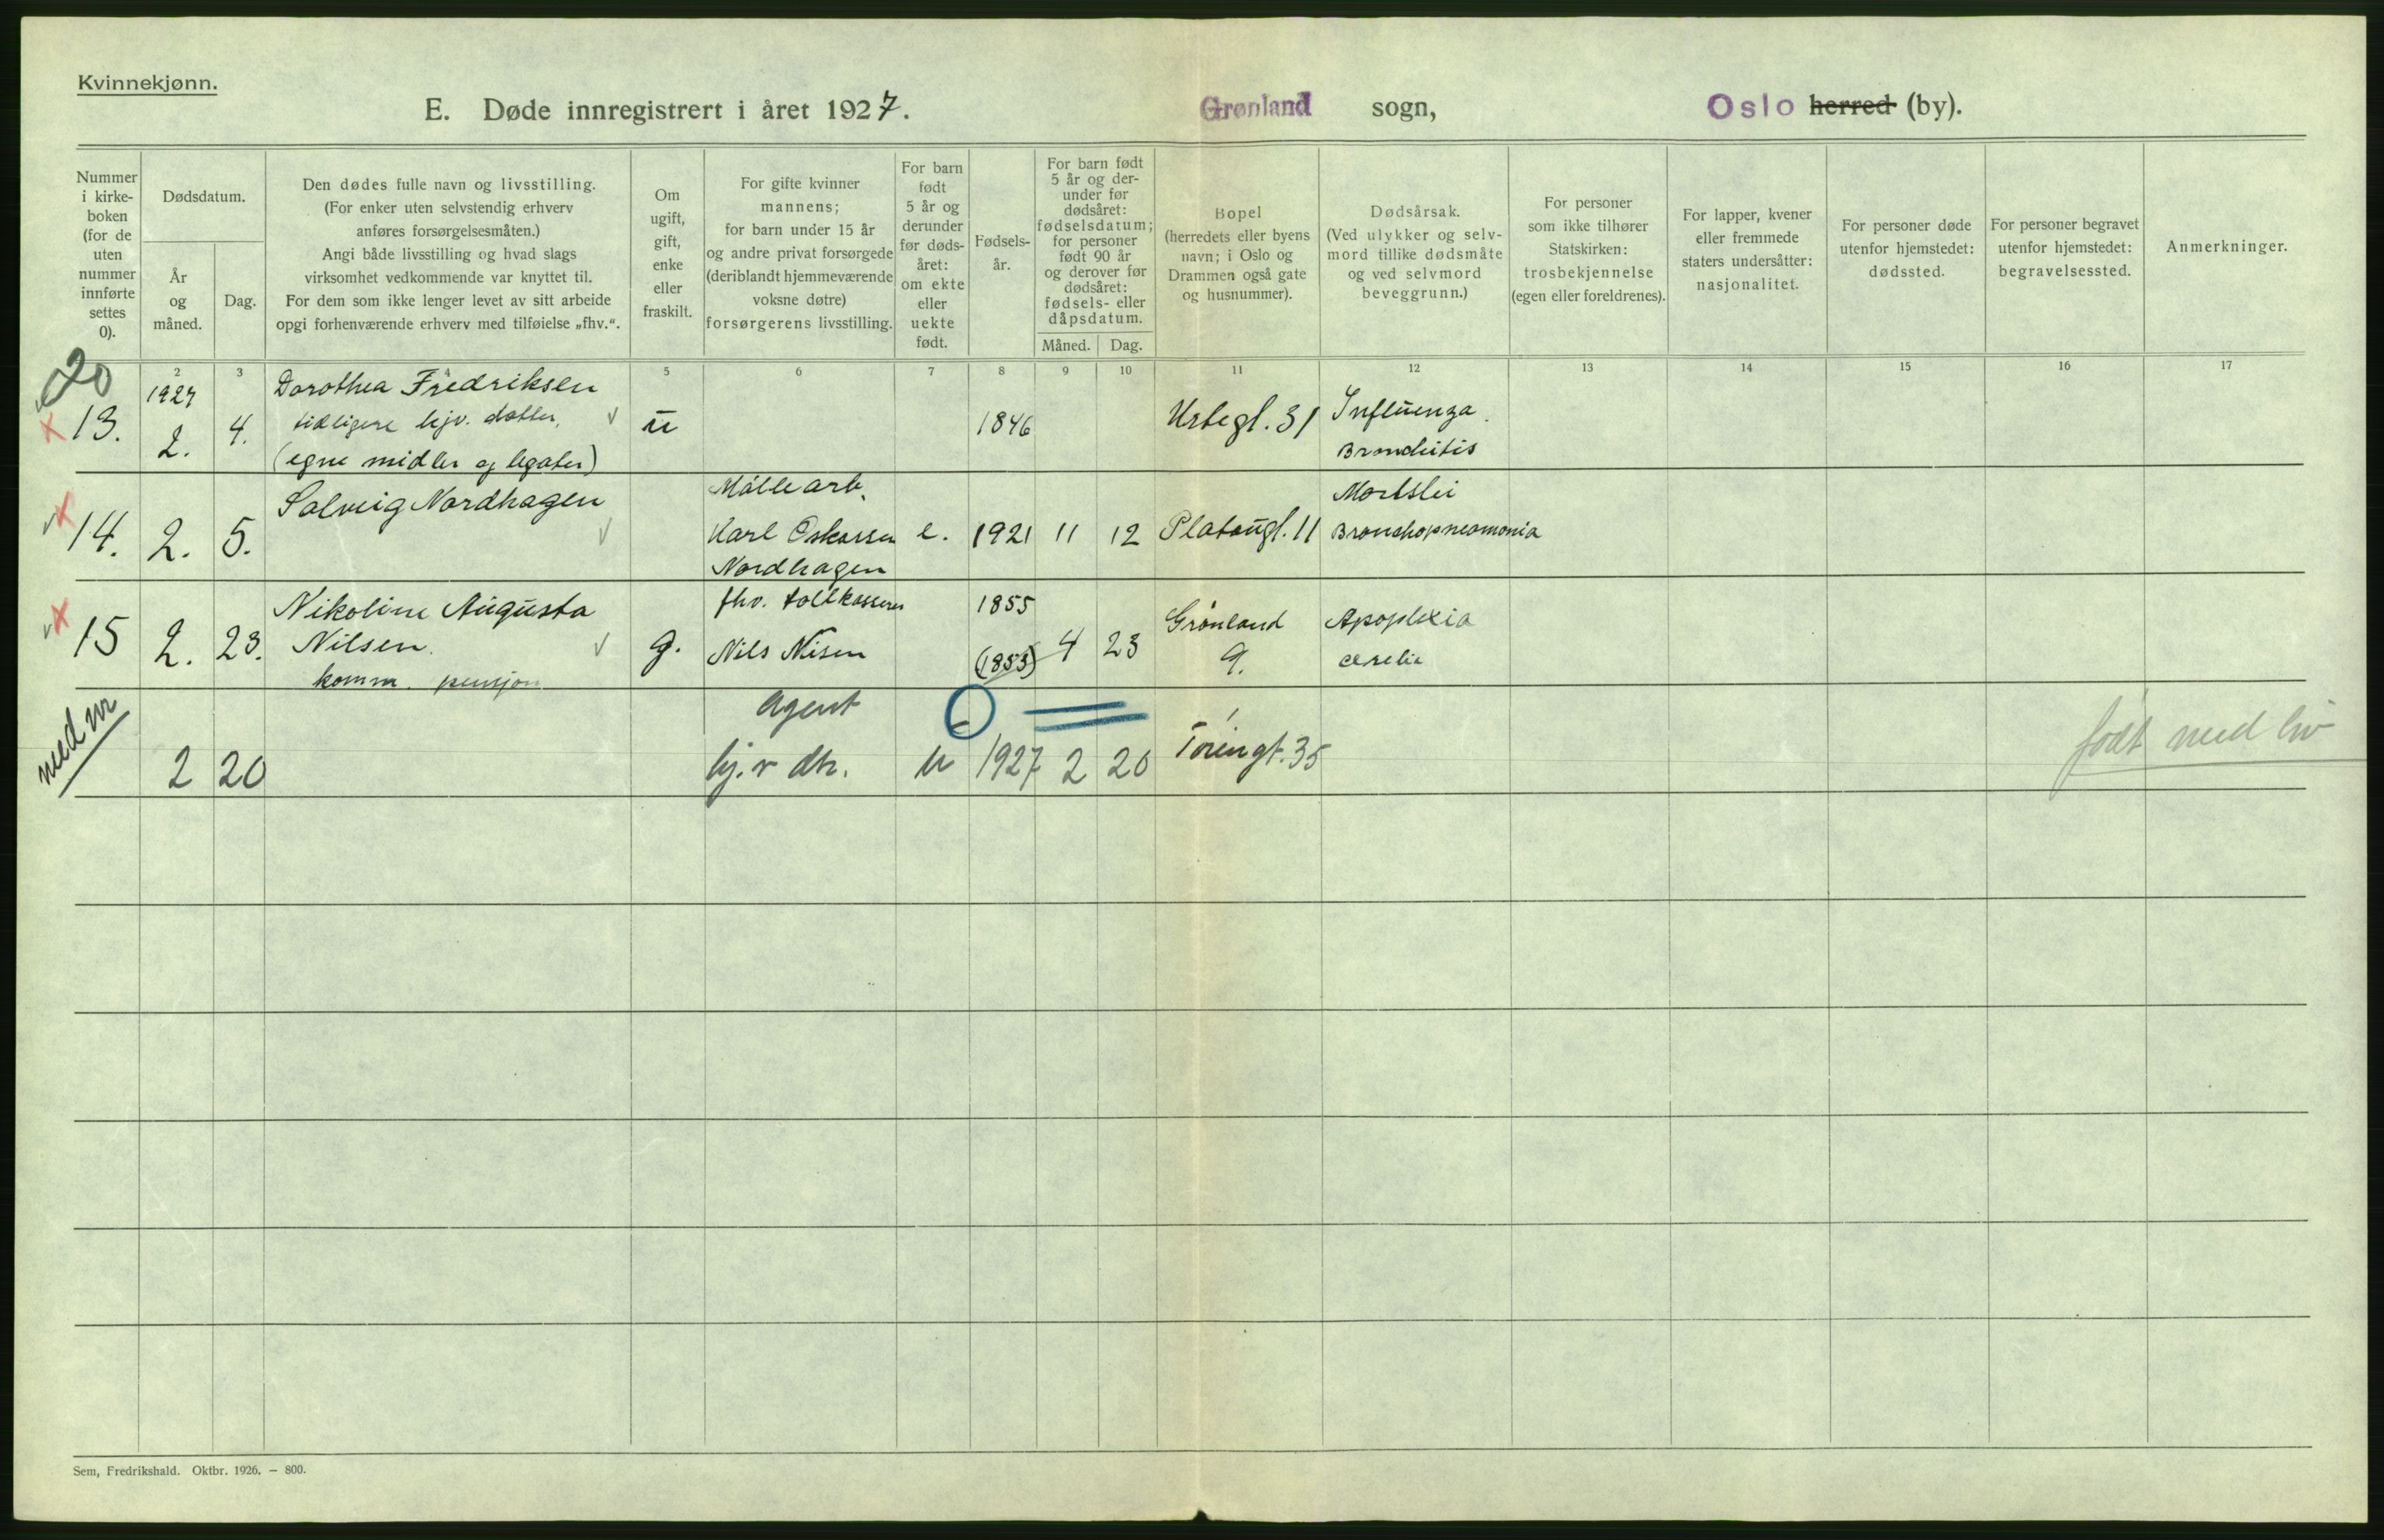 Kvinnekjønn.
E. Døde innregistrert i året 1927.
Grønland sogn,
Oslo herred (by).
Nummer
i kirke-
boken
(for de
uten
nummer
innførte
settes
0).
Dødsdatum.
År
og
måned.
Dag.
Den dødes fulle navn og livsstilling.
(For enker uten selvstendig erhverv
anføres forsørgelsesmåten.)
Angi både livsstilling og hvad slags
virksomhet vedkommende var knyttet til.
For dem som ikke lenger levet av sitt arbeide
opgi forhenværende erhverv med tilføielse „fhv.“.
Om
ugift,
gift,
enke
eller
fraskilt.
For gifte kvinner
mannens;
for barn under 15 år
og andre privat forsørgede
(deriblandt hjemmeværende
voksne døtre)
forsørgerens livsstilling.
For barn
født
5 år og
derunder
før døds-
året:
om ekte
eller
uekte
født.
Fødsels-
år.
For barn født
5 år og der-
under før
dødsåret:
fødselsdatum;
for personer
født 90 år
og derover før
dødsåret:
fødsels- eller
dåpsdatum.
Måned.
Dag.
Bopel
(herredets eller byens
navn; i Oslo og
Drammen også gate
og husnummer).
Dødsårsak.
(Ved ulykker og selv-
mord tillike dødsmåte
og ved selvmord
beveggrunn.)
For personer
som ikke tilhører
Statskirken:
trosbekjennelse
(egen eller foreldrenes).
For lapper, kvener
eller fremmede
staters undersåtter:
nasjonalitet.
For personer døde
utenfor hjemstedet:
dødssted.
For personer begravet
utenfor hjemstedet:
begravelsessted.
Anmerkninger.
20
2 3 5 6 7 8 9 10 11 12 13 14 15 16 17
13.
1927
2.
4.
Dorothea Fredriksen
tidligere hjv. datter.
(egne midler og legater)
u
1846
Urtegt. 31
Influenza.
Bronchitis
14.
2.
5.
Solveig Nordhagen
Møllearb.
Karl Oskarsen
Nordhagen
e.
1921
11
12
Platougt. 11
Morbilli
Bronchopneomonia
15
2.
23.
Nikoline Augusta
Nilsen.
komm. pensjon
g.
fhv. tollkasserer
Nils Nisen
1855
(1853)
4
23
Grønland
9.
Apoplexia
cerebri
med nr
2
20
Agent
hj. v dtr.
u
1927
2
20
Tøiengt. 35
født med liv
Sem, Fredrikshald. Oktbr. 1926. — 800.